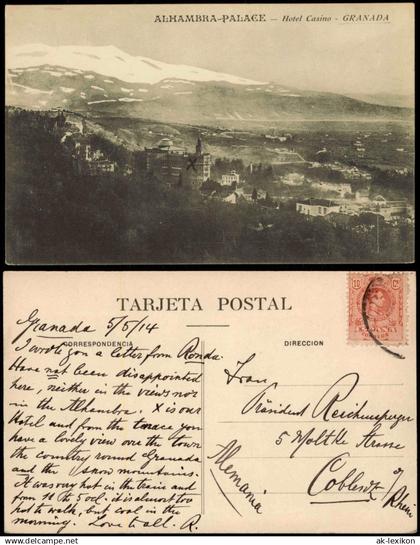 ALHAMBRA-PALACE — Hotel Casino - GRANADA
TARJETA POSTAL
CORRESPONDENCIA
DIRECCION
Granada 5/5/14
I wrote you a letter from Ronda.
Have not been disappointed
here, neither in the views nor
in the Alhambra. X is our
Hotel and from the terrace you
have a lovely view over the town
the country round Granada
and the snow mountains.
It was very hot in the train and
from 10 to 5 ocl. it is almost too
hot to walk, but cool in the
morning. Love to all. R.
10 Cs
Frau
Präsident
5 Moltke Strasse
Coblenz a/
Rhein
Alemania
www.ak-lexikon.de